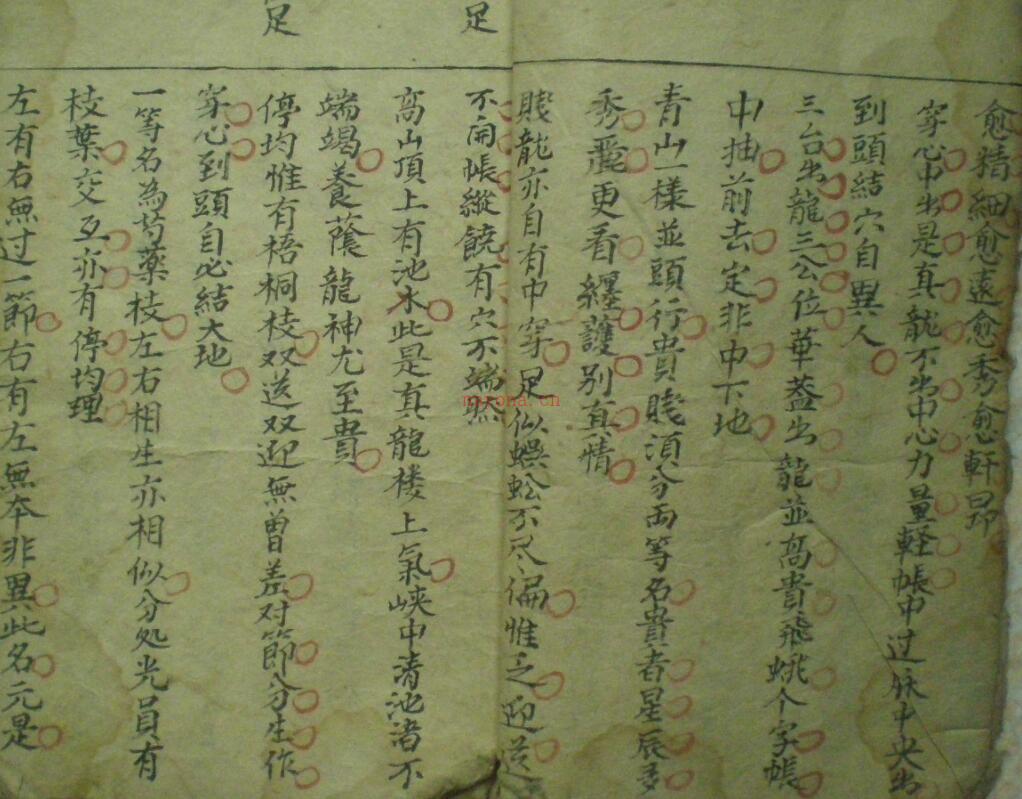 愈精細愈遠愈秀愈軒昂
穿心中出是真龍不出中心力量軽帳中过脉中央出
到頭結穴自異人
三台出龍三公位華盖出龍並高貴飛蛾个字帳
中抽前去定非中下地
青山一樣並頭行貴賎湏分两等名貴者星辰多
秀麗更看纒護别真情
賎龍亦自有中穿足似蜈蚣不尽偏惟乏迎送
足
不開帳縱饒有穴不端然
高山頂上有池水此是真龍楼上氣峡中清池渚不
端竭養蔭龍神尤至貴
足
停均惟有梧桐枝双送双迎無曽差对節分生作
穿心到頭自必結大地
一等名為芍薬枝左右相生亦相似分処光員有
枝葉交互亦有停均理
左有右無过一節右有左無本非異此名元是
myrona.cn